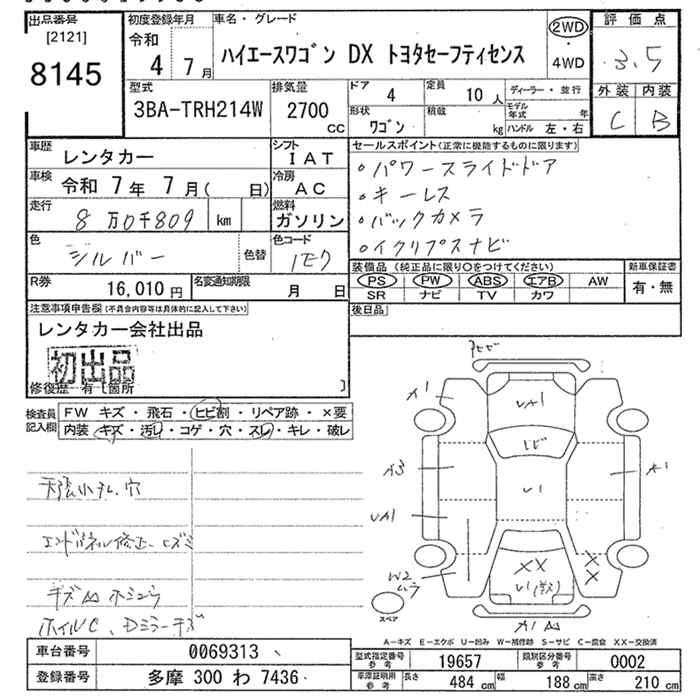 出品番号
[2121]
8145
初度登録年月
令和
4 7月
車名・グレード
ハイエースワゴン DX トヨタセーフティセンス
2WD
・
4WD
評価点
3.5
外装 内装
C B
型式
3BA-TRH214W
排気量
2700
cc
ドア
4
定員
10 人
形状
ワゴン
積載
kg
ディーラー・並行
モデル年式 年
ハンドル 左・右
車歴
レンタカー
シフト
IAT
車検
令和 7年 7月( 日)
冷房
AC
走行
8万0千809 km
燃料
ガソリン
色
シルバー
色替
色コード
1E7
R券
16,010円
名変通知期限
月 日
セールスポイント(正常に機能するものに限ります)
・パワースライドドア
・キーレス
・バックカメラ
・イクリプスナビ
装備品(純正品に限り○をつけてください)
PS PW ABS エアB AW
SR ナビ TV カワ
新車保証書
有・無
後日品
注意事項申告欄(不具合内容等は具体的に記入して下さい)
レンタカー会社出品
初出品
修復歴 有〔箇所 〕
検査員記入欄
FW キズ・飛石・ヒビ割・リペア跡・×要
内装 キズ・汚レ・コゲ・穴・スレ・キレ・破レ
エンドパネル修正、ヒズミ
ホイルC、Dミラーキズ
A1
UA1
ヒビ
A3
U1
A1
UA1
W2
ムラ
XX
XX
スペア
A1
A-キズ E-エクボ U-凹み W-補修跡 S-サビ C-腐食 XX-交換済
車台番号
0069313
登録番号
多摩 300 わ 7436
型式指定番号
参考
19657
類別区分番号
参考
0002
車庫証明用
参考
長さ
484 cm
幅
188 cm
高さ
210 cm